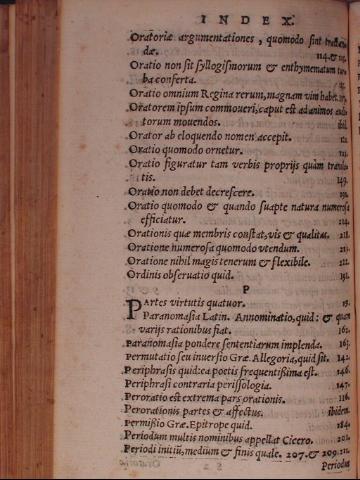 INDEX.
Oratoriæ argumentationes, quomodo sint tractan
dæ. 114. &
Oratio non sit syllogismorum & enthymematum tur
ba conferta.
Oratio omnium Regina rerum, magnam vim habet.
Oratorem ipsum commoueri, caput est ad animos audi
torum mouendos. ibid.
Orator ab eloquendo nomen accepit.
Oratio quomodo ornetur.
Oratio figuratur tam verbis proprijs quàm transla
tis. 149.
Oratio non debet decrescere.
Oratio quomodo & quando suapte natura numerosa
efficiatur. 214.
Orationis quæ membris constat, vis & qualitas. 218.
Oratione numerosa quomodo vtendum. 213.
Oratione nihil magis tenerum & flexibile. 222.
Ordinis obseruatio quid. 191.
P
PArtes virtutis quatuor. 19.
Paranomasia Latin. Annominatio, quid: & quot
varijs rationibus fiat. 162.
Paranomasia pondere sententiarum implenda. 163.
Permutatio seu inuersio Græ. Allegoria, quid sit. 142.
Periphrasis quid: ea poetis frequentißima est. 146.
Periphrasi contraria perissologia. 147.
Peroratio est extrema pars orationis. 116.
Perorationis partes & affectus. ibidem.
Permißio Græ. Epitrope quid. 184.
Periodum multis nominibus appellat Cicero. 202.
Periodi initiũ, medium & finis quale. 207. & 209. 211.
Periodus